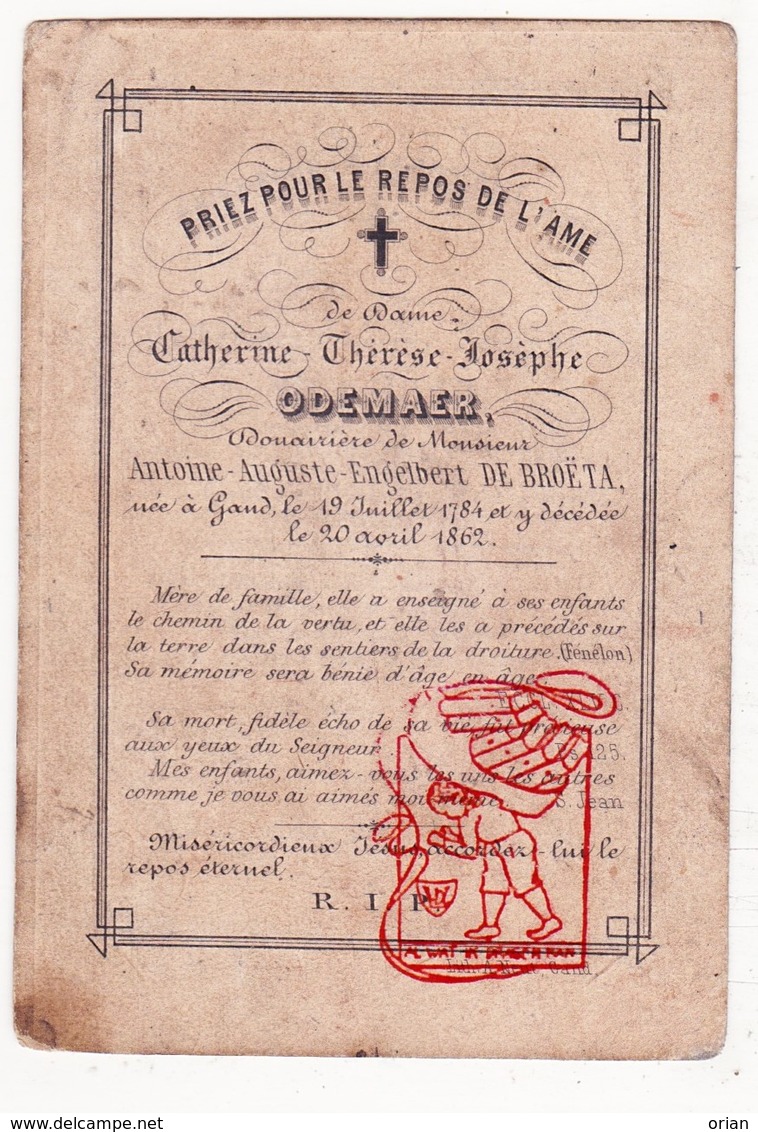 PRIEZ POUR LE REPOS DE L'AME
de Dame
Catherine - Thérèse - Josèphe
ODEMAER,
Douairière de Monsieur
Antoine - Auguste - Engelbert DE BROËTA,
née à Gand, le 19 Juillet 1784 et y décédée
le 20 avril 1862.
Mère de famille, elle a enseigné à ses enfants
le chemin de la vertu, et elle les a précédés sur
la terre dans les sentiers de la droiture. (Fénélon)
Sa mémoire sera bénie d'âge en âge.
Sa mort, fidèle écho de sa vie fut précieuse
aux yeux du Seigneur Ps 125.
Mes enfants, aimez-vous les uns les autres
comme je vous ai aimés moi même. S. Jean
Miséricordieux Jésus, accordez-lui le
repos éternel.
R. I. P.
Gand
www.delcampe.net
orian